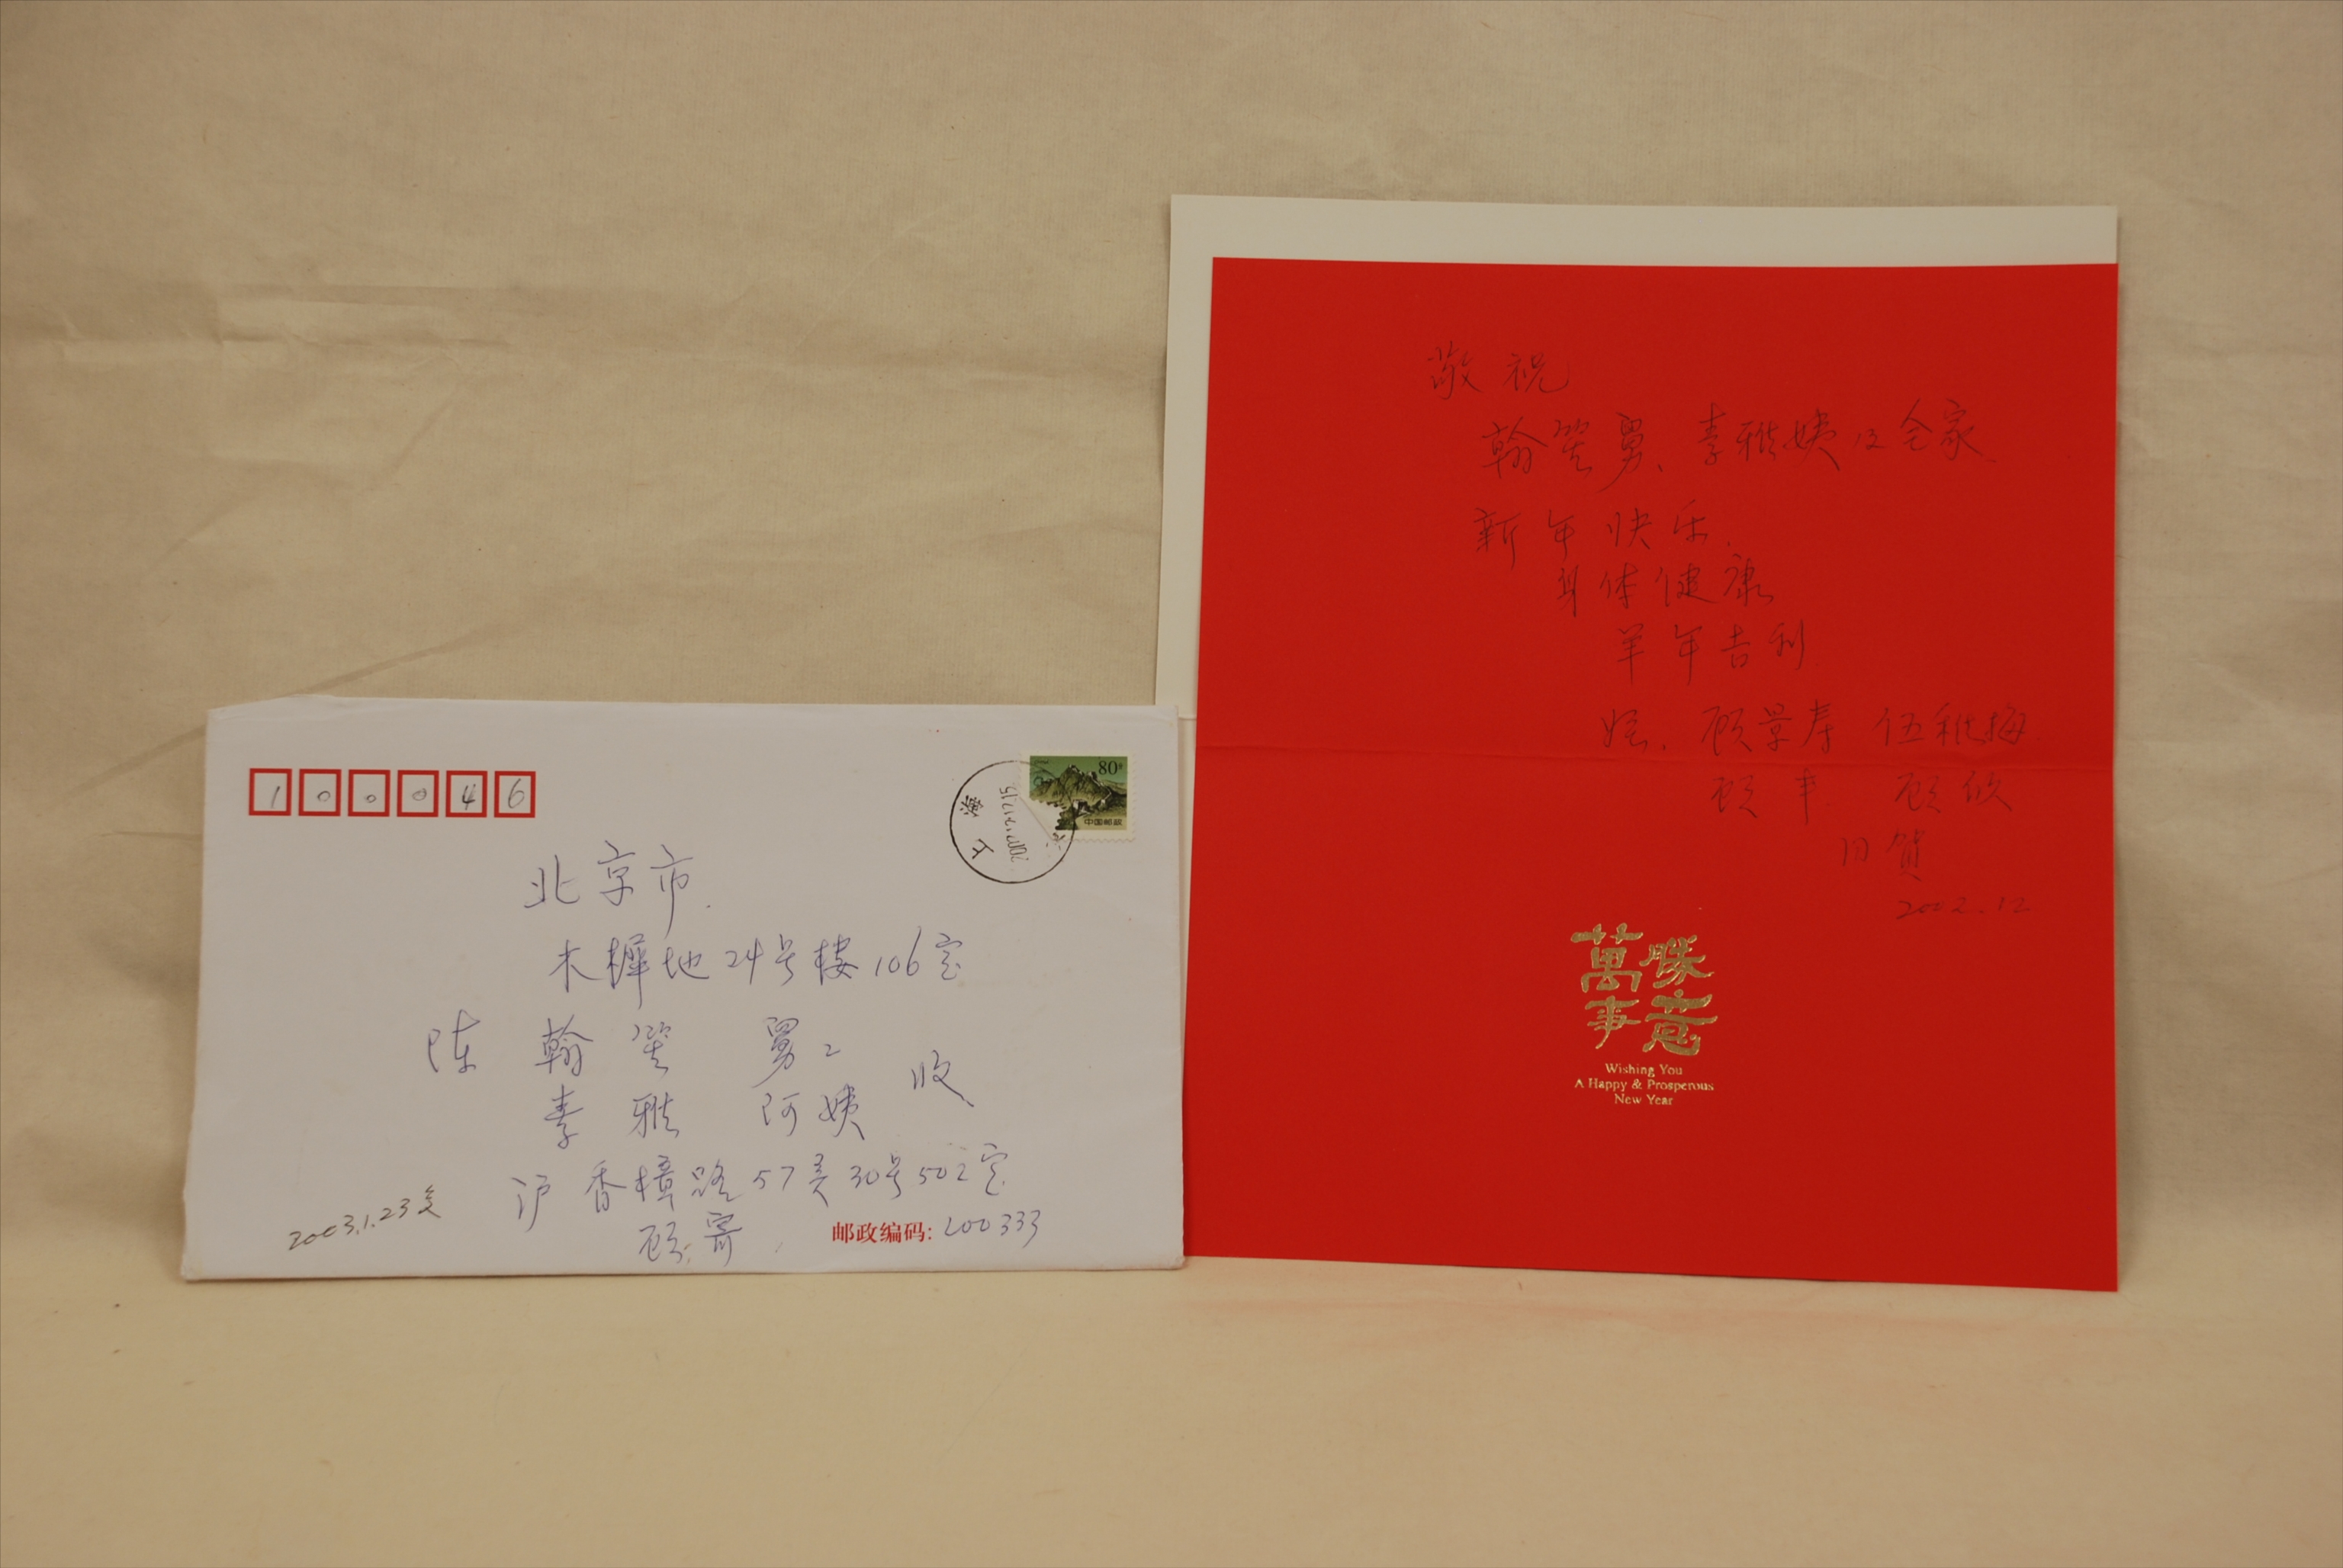 100046
80分
中国邮政
上海
北京市
木樨地24号楼106室
陈 翰笙 舅舅
素雅 阿姨 收
沪香樟路57弄30号502室
顾寄
邮政编码: 200333
2003.1.23
敬祝
翰笙舅、素雅姨及全家
新年快乐、
身体健康
羊年吉利
顾景寿 伍雅梅
顾丰 顾欣
同贺
2002.12
萬事勝意
Wishing You
A Happy & Prosperous
New Year